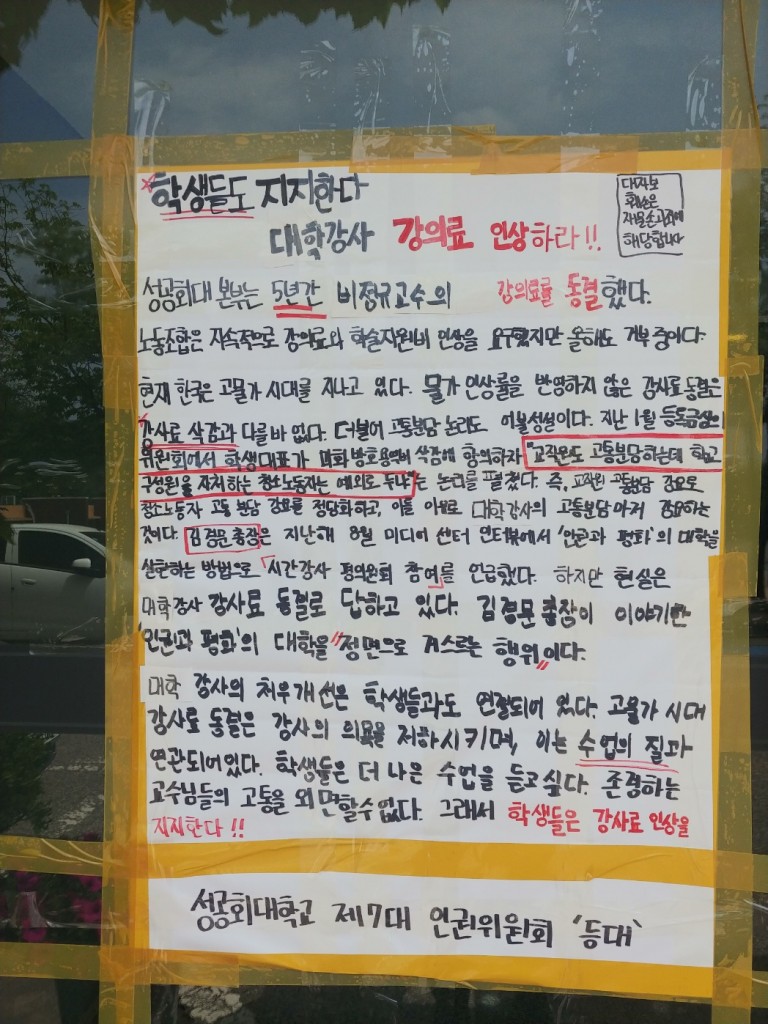 학생들도 지지한다
대학강사 강의료 인상하라!!
대자보
훼손은
재물손괴죄에
해당합니다
성공회대 본부는 5년간 비정규교수의 강의료를 동결했다.
노동조합은 지속적으로 강의료와 학술지원비 인상을 요구했지만 올해도 거부 중이다.
현재 한국은 고물가 시대를 지나고 있다. 물가 인상률을 반영하지 않은 강사료 동결은
강사료 삭감과 다를 바 없다. 더불어 고통분담 논리도 어불성설이다. 지난 1월 등록금심의
위원회에서 학생대표가 미화 방호용역비 삭감에 항의하자 "교직원도 고통분담하는데 학교
구성원을 자처하는 청소노동자는 예외로 두냐"는 논리를 펼쳤다. 즉, 교직원 고통분담 강요로
청소노동자 고통 분담 강요를 정당화하고, 이를 이유로 대학강사의 고통분담마저 강요하는
것이다. 김경문 총장은 지난해 8월 미디어 센터 인터뷰에서 '인권과 평화'의 대학을
실현하는 방법으로 「시간강사 평의원회 참여」를 언급했다. 하지만 현실은
대학강사 강사료 동결로 답하고 있다. 김경문 총장이 이야기한
'인권과 평화'의 대학을 "정면으로 거스르는 행위"이다.
대학 강사의 처우개선은 학생들과도 연결되어 있다. 고물가 시대
강사료 동결은 강사의 의욕을 저하시키며, 이는 수업의 질과
연관되어있다. 학생들은 더 나은 수업을 듣고싶다. 존경하는
교수님들의 고통을 외면할수없다. 그래서 학생들은 강사료 인상을
지지한다!!
성공회대학교 제7대 인권위원회 '등대'